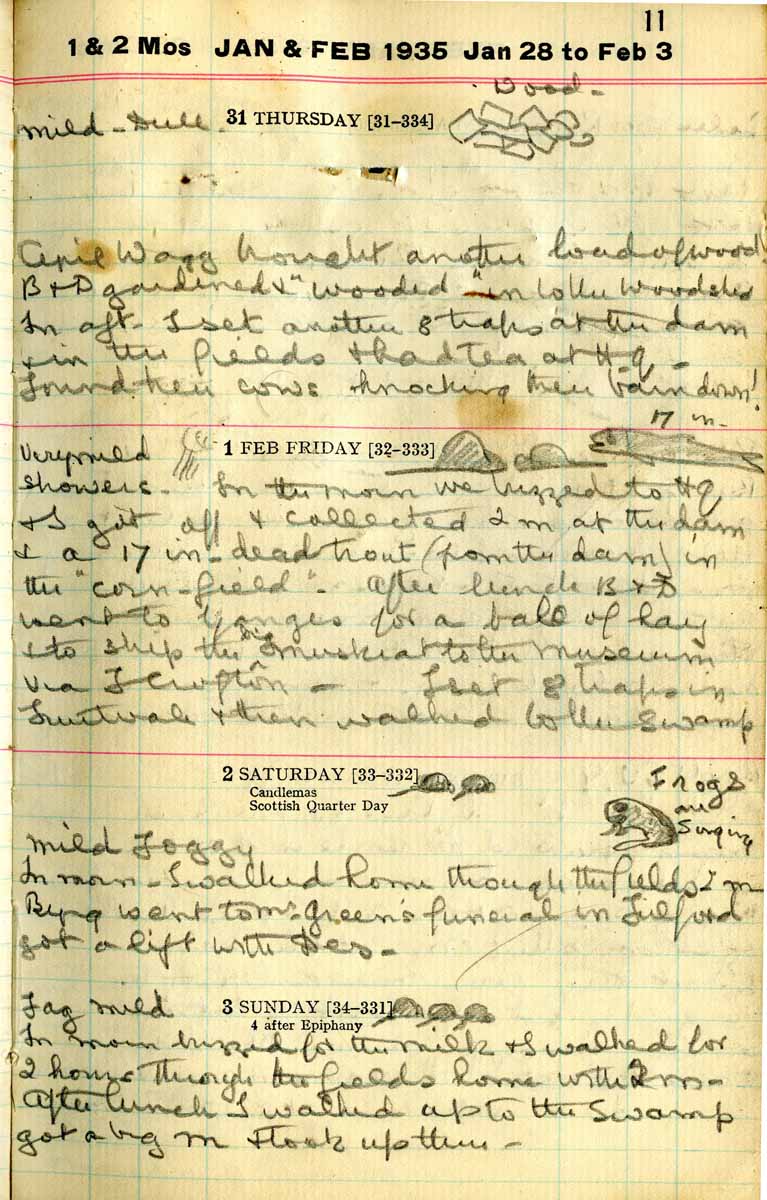 11
1 & 2 Mos JAN & FEB 1935 Jan 28 to Feb 3
Wood -
mild - Dull. 31 THURSDAY [31–334]
Wagg brought another load of wood!
B & D gardened & "wooded" in to the woodshed
In aft - I set another 8 traps at the dam
& in the fields & had tea at Hq -
Found their cows knocking their barn down!
17 in -
Very mild 1 FEB FRIDAY [32–333]
showers - In the morn we buzzed to Hq
& I got off & collected 2 m at the dam
& a 17 in - dead trout (from the dam) in
the "corn-field" - After lunch B & D
went to for a bale of hay
& to ship the big muskrat to the Museum
via I Crofton - I set 8 traps in
Fruitvale & then walked to the Swamp
2 SATURDAY [33–332]
Candlemas
Scottish Quarter Day
Frogs
are
Singing
mild Foggy
In morn - I walked home through the fields 2 m
went to Mrs Green's funeral in Fulford
got a lift with Des -
Fog mild 3 SUNDAY [34–331]
4 after Epiphany
In morn buzzed for the milk & I walked for
2 hours through the fields home with 2 m -
After lunch I walked up to the Swamp
got a big m & took up there -